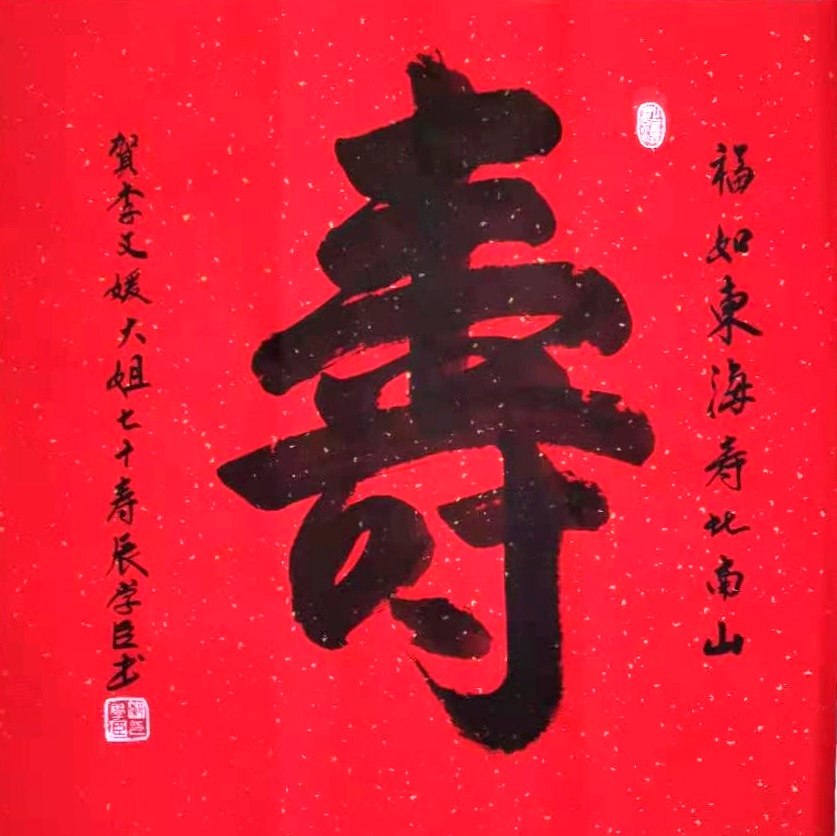 福如東海寿比南山
壽
賀李文媛大姐七十寿辰学臣书